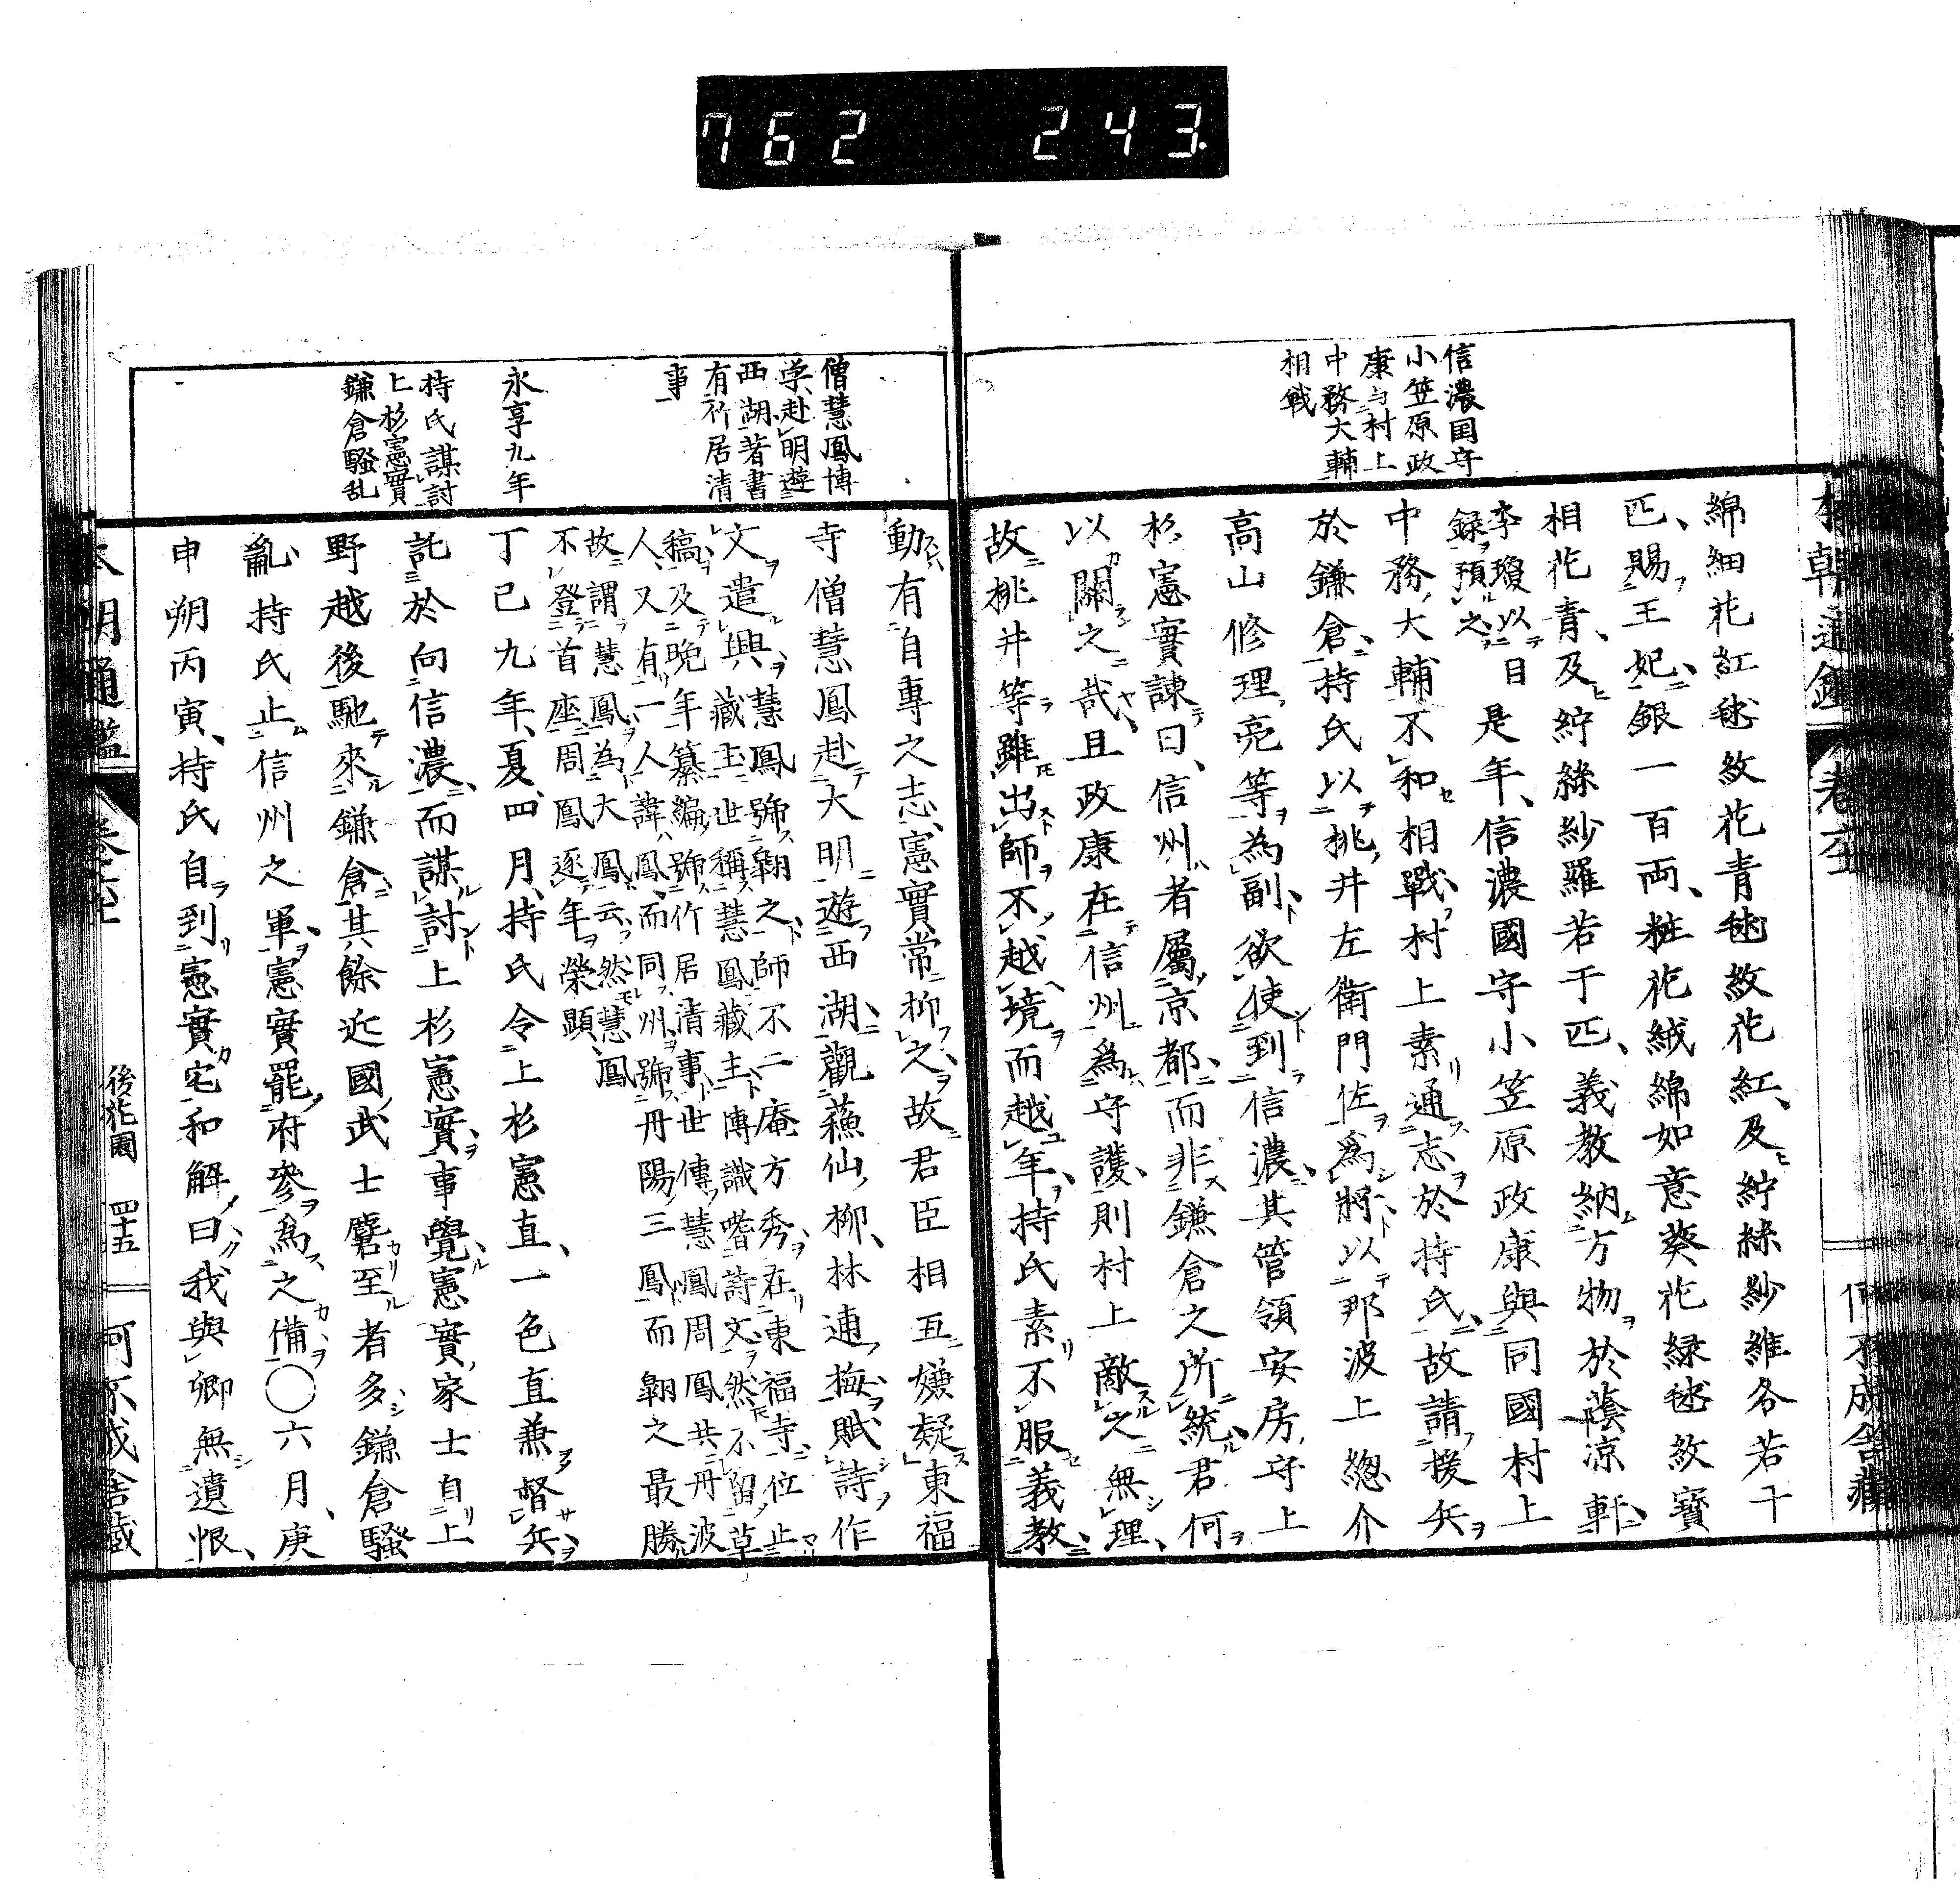 762 243
信濃国守
小笠原政
康与村上
中務大輔
相戦
綿細花紅毬紋花青毬紋花紅、及紵絲紗維各若干
匹、賜王妃、銀一百両、粧花絨綿如意葵花緑毬紋寶
相花青、及紵絲紗羅若于匹、義教納方物於蔭凉軒、
李瓊以目
録預之
是年、信濃國守小笠原政康與同國村上
中務大輔不和相戰、村上素通志於持氏、故請援兵
於鎌倉、持氏以桃井左衛門佐為將、以那波上總介
高山修理亮等為副、欲使到信濃、其管領安房守上
杉憲實諌曰、信州者屬京都、而非鎌倉之所統、君何
以關之哉、且政康在信州為守護、則村上敵之無理、
故桃井等雖出師不越境而越年、持氏素不服義教、
僧慧鳳博
学、赴明遊
西湖著書
有竹居清
事
永享九年
持氏謀討
上杉憲實
鎌倉騷乱
動有自專之志、憲實常抑之、故君臣相互嫌疑、東福
寺僧慧鳳赴大明遊西湖、觀蘓仙柳、林逋梅、賦詩作
文遣興、慧鳳號翺之、師不二庵方秀、在東福寺、位止
藏主、世稱慧鳳藏主、博識嗜詩文、然不留草
稿、及晩年纂編號竹居清事、世傳慧鳳周鳳共丹波
人、又有一人諱鳳、而同州號丹陽三鳳、而翺之最勝
故謂慧鳳為大鳳云、然慧鳳
不登首座、周鳳逐年榮顯、
丁巳九年、夏、四月、持氏令上杉憲直、一色直兼督兵、
託於向信濃、而謀討上杉憲實、事覺、憲實家士自上
野越後馳來鎌倉、其餘近國武士麏至者多、鎌倉騷
亂、持氏止信州之軍、憲實罷府參為之備〇六月、庚
申朔丙寅、持氏自到憲實宅和解、曰、我與卿無遺恨、
本朝通鑑
後花園 四十五